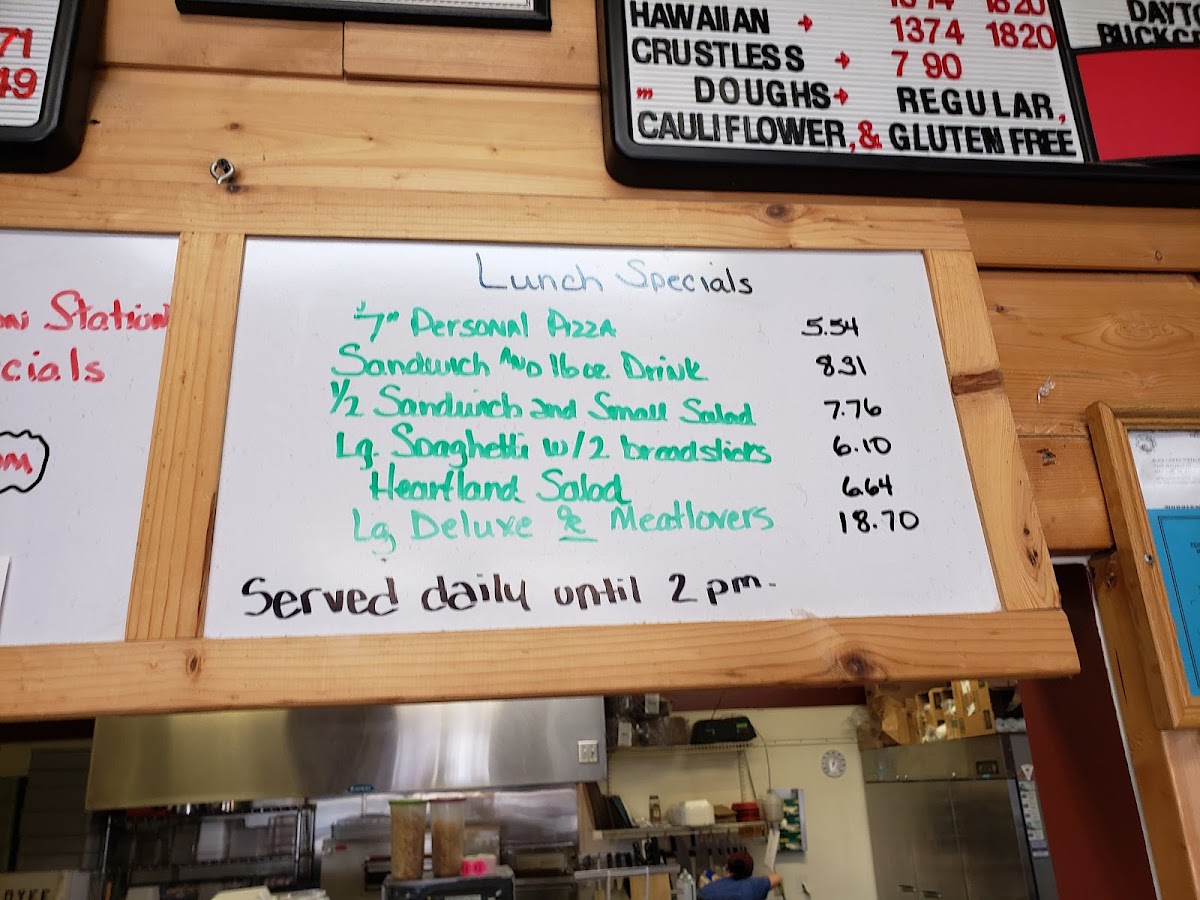 71
49
1374 1820
HAWAIIAN → 1374 1820
CRUSTLESS → 7 90
" DOUGHS → REGULAR,
CAULIFLOWER, & GLUTEN FREE
Station
cials
Lunch Specials
7" Personal Pizza 5.54
Sandwich AND 16 oz. Drink 8.31
1/2 Sandwich and Small Salad 7.76
Lg. Spaghetti w/2 breadsticks 6.10
Heartland Salad 6.64
Lg. Deluxe & Meatlovers 18.70
Served daily until 2 pm.